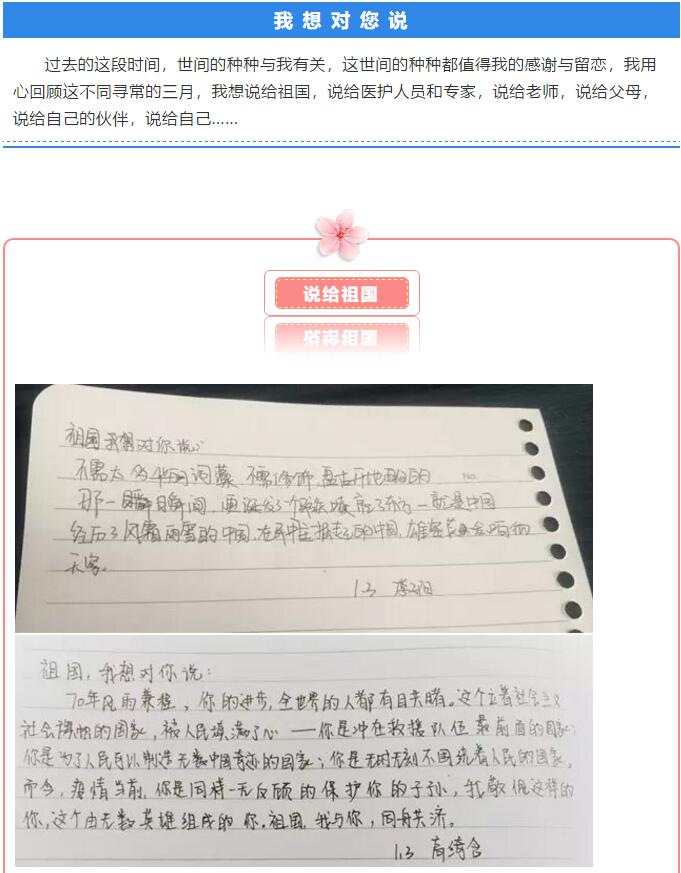 我想对您说
过去的这段时间，世间的种种与我有关，这世间的种种都值得我的感谢与留恋，我用
心回顾这不同寻常的三月，我想说给祖国，说给医护人员和专家，说给老师，说给父母，
说给自己的伙伴，说给自己......
说给祖国
说给祖国
祖国我想对你说：
不需太多华丽词藻 不需修饰，盘古开地的
No.
那一瞬间，更诞发了个
经历了风霜雨雪的中国，在中国，雄
1.3
祖国，我想对你说：
70年风雨兼程，你的进步，全世界的人都有目共睹。这个立着社会主义
社会旗帜的国家，被人民填满了心——你是冲在救援队伍最前面的国家；
你是为了人民可以制造无数中国奇迹的国家；你是无时无刻不围绕着人民的国家，
而今，疫情当前，你是同样一无反顾的保护你的子孙，我敬佩这样的
你，这个由无数英雄组成的你。祖国，我与你，同舟共济。
1.3 高绮含